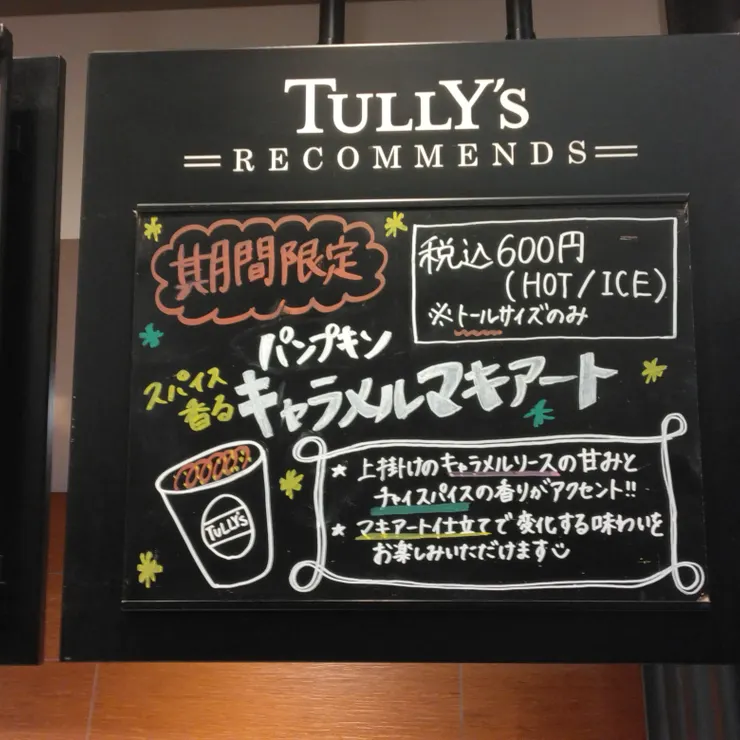 TULLY'S
RECOMMENDS
期間限定
税込600円
(HOT/ICE)
※トールサイズのみ
パンプキン
スパイス
香る
キャラメルマキアート
TULLY'S
★ 上掛けのキャラメルソースの甘みと
チャイスパイスの香りがアクセント!!
★ マキアート仕立てで変化する味わいを
お楽しみいただけます